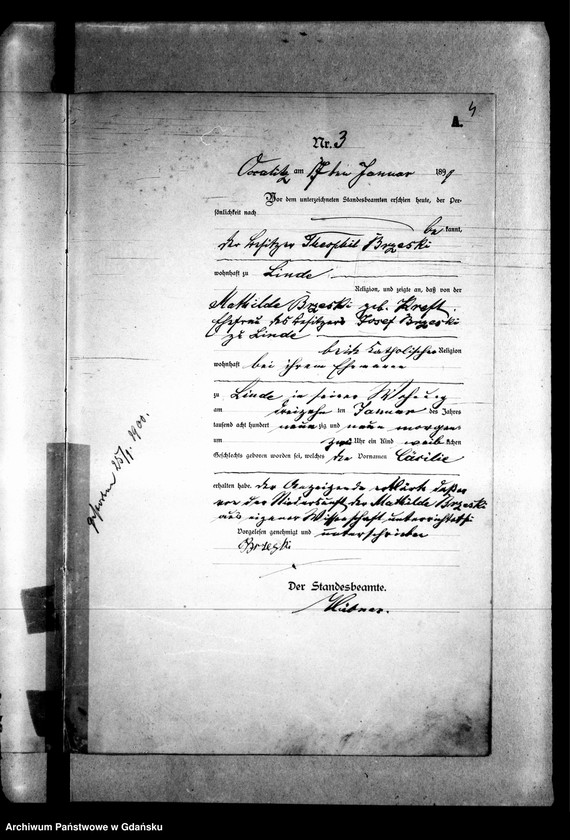 4
Nr. 3
am 17ten Januar 1899
Vor dem unterzeichneten Standesbeamten erschien heute, der Per-
sönlichkeit nach
be kannt,
der Besitzer Theophil Brzeski
wohnhaft zu Linde
Religion, und zeigte an, daß von der
Mathilde Brzeski geb. Kreft,
Ehefrau des Besitzers Josef Brzeski
zu Linde
beide katholischer Religion
wohnhaft bei ihrem Ehemanne
zu Linde in seiner Wohnung
am dreizehn ten Januar des Jahres
tausend acht hundert neun zig und neun morgens
um zwei Uhr ein Kind weib lichen
Geschlechts geboren worden sei, welches die Vornamen Cäcilie
erhalten habe. Der Anzeigende erklärte daß er
von der Niederkunft der Mathilde Brzeski
aus eigener Wissenschaft unterrichtet sei
Vorgelesen genehmigt und unterschrieben
Brzeski
Der Standesbeamte.
Hübner.
gestorben 25/1. 1900.
Archiwum Państwowe w Gdańsku